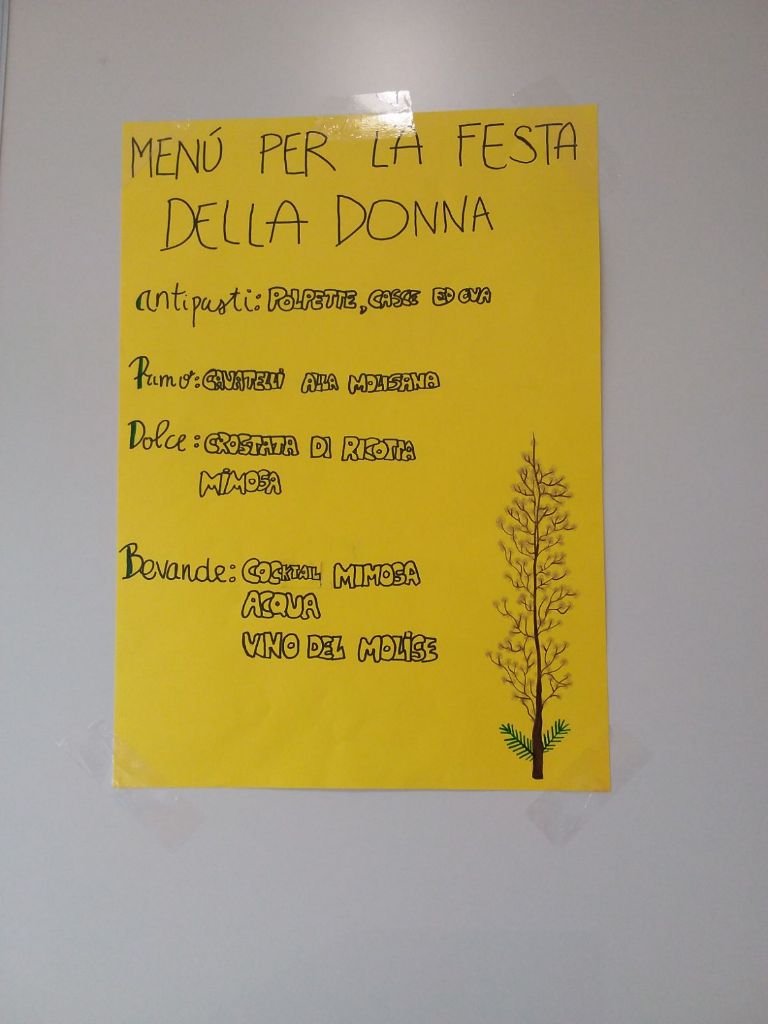 MENÚ PER LA FESTA
DELLA DONNA
antipasti: POLPETTE, CASCE ED OVA
Primo: CAVATELLI ALLA MOLISANA
Dolce: CROSTATA DI RICOTTA
MIMOSA
Bevande: COCKTAIL MIMOSA
ACQUA
VINO DEL MOLISE